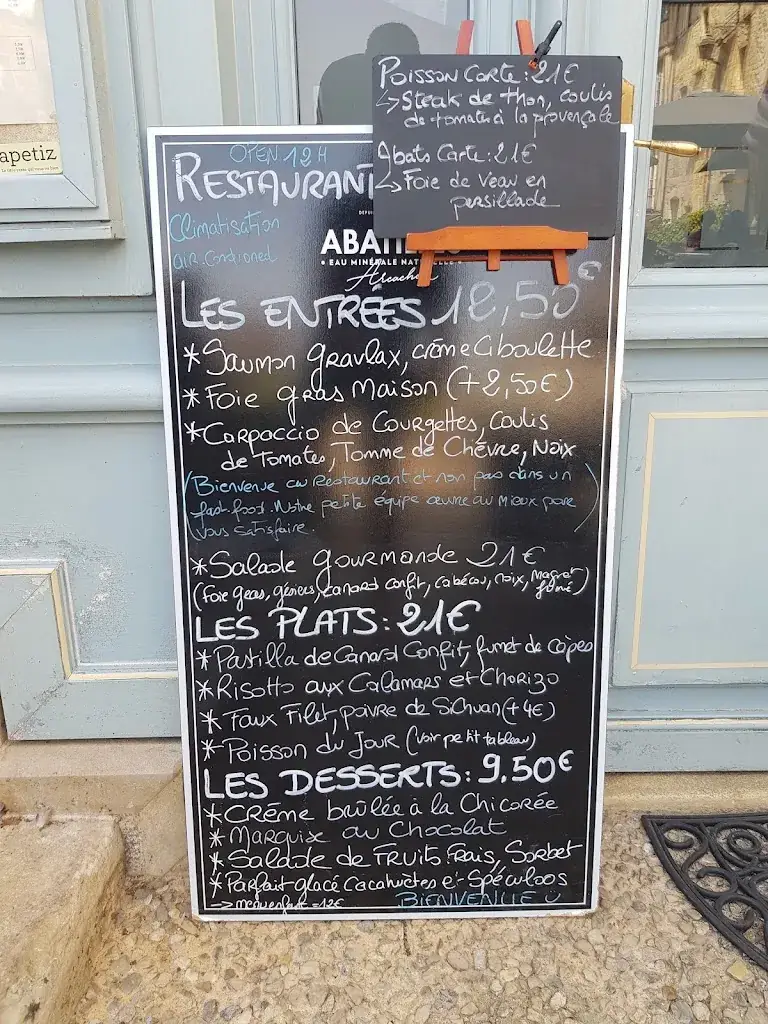 apetiz
POISSON CARTE : 21€
↳ Steak de thon, coulis
de tomates à la provençale
Abats Carte : 21€
↳ Foie de veau en
persillade
OPEN 12H
RESTAURANT
Climatisation
air-Condioned
DEPUIS
ABATI
• EAU MINÉRALE NAT LLE •
Arcachon
LES ENTRÉES 12,50€
* Saumon Gravlax, crème Ciboulette
* Foie gras Maison (+2,50€)
* Carpaccio de Courgettes, Coulis
de Tomates, Tomme de Chèvre, Noix
(Bienvenue au Restaurant et non pas dans un
fast-food. Notre petite équipe œuvre au mieux pour
vous satisfaire.)
* Salade gourmande 21€
(Foie gras, gésiers, canard confit, cabécou, noix, Magret
fumé)
LES PLATS : 21€
* Pastilla de Canard Confit, fumet de cèpes
* Risotto aux Calamars et Chorizo
* Faux Filet, poivre de Sichuan (+4€)
* Poisson du Jour (voir petit tableau)
LES DESSERTS : 9.50€
* Crème brûlée à la Chicorée
* Marquise au Chocolat
* Salade de Fruits Frais, Sorbet
* Parfait glacé Cacahuètes et Spéculoos
-> menu enfant = 12€
BIENVENUE